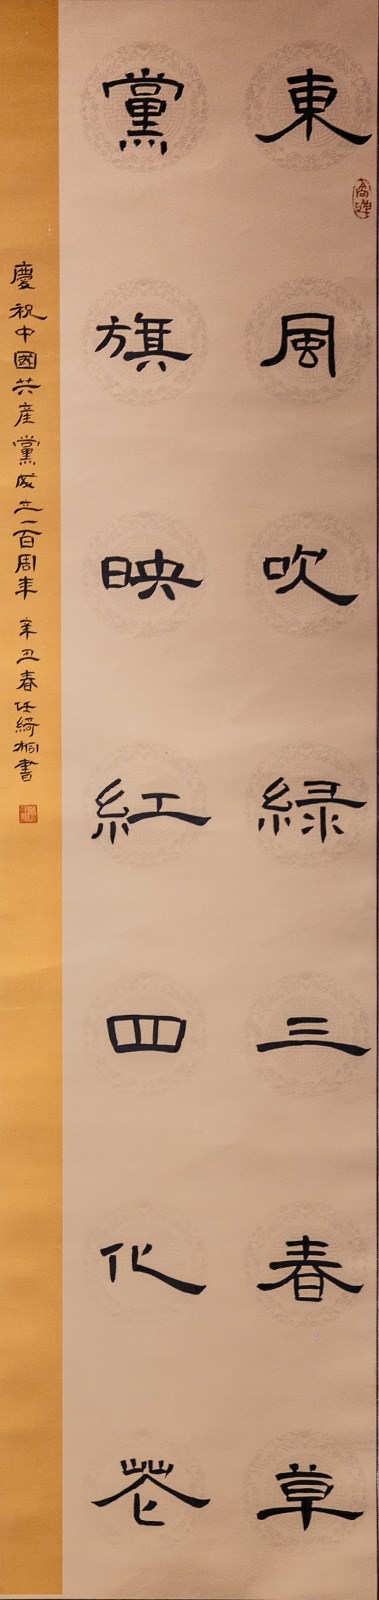 東風吹緑三春草
黨旗映紅四化花
慶祝中國共産黨成立一百周年 辛丑春任綺桐書